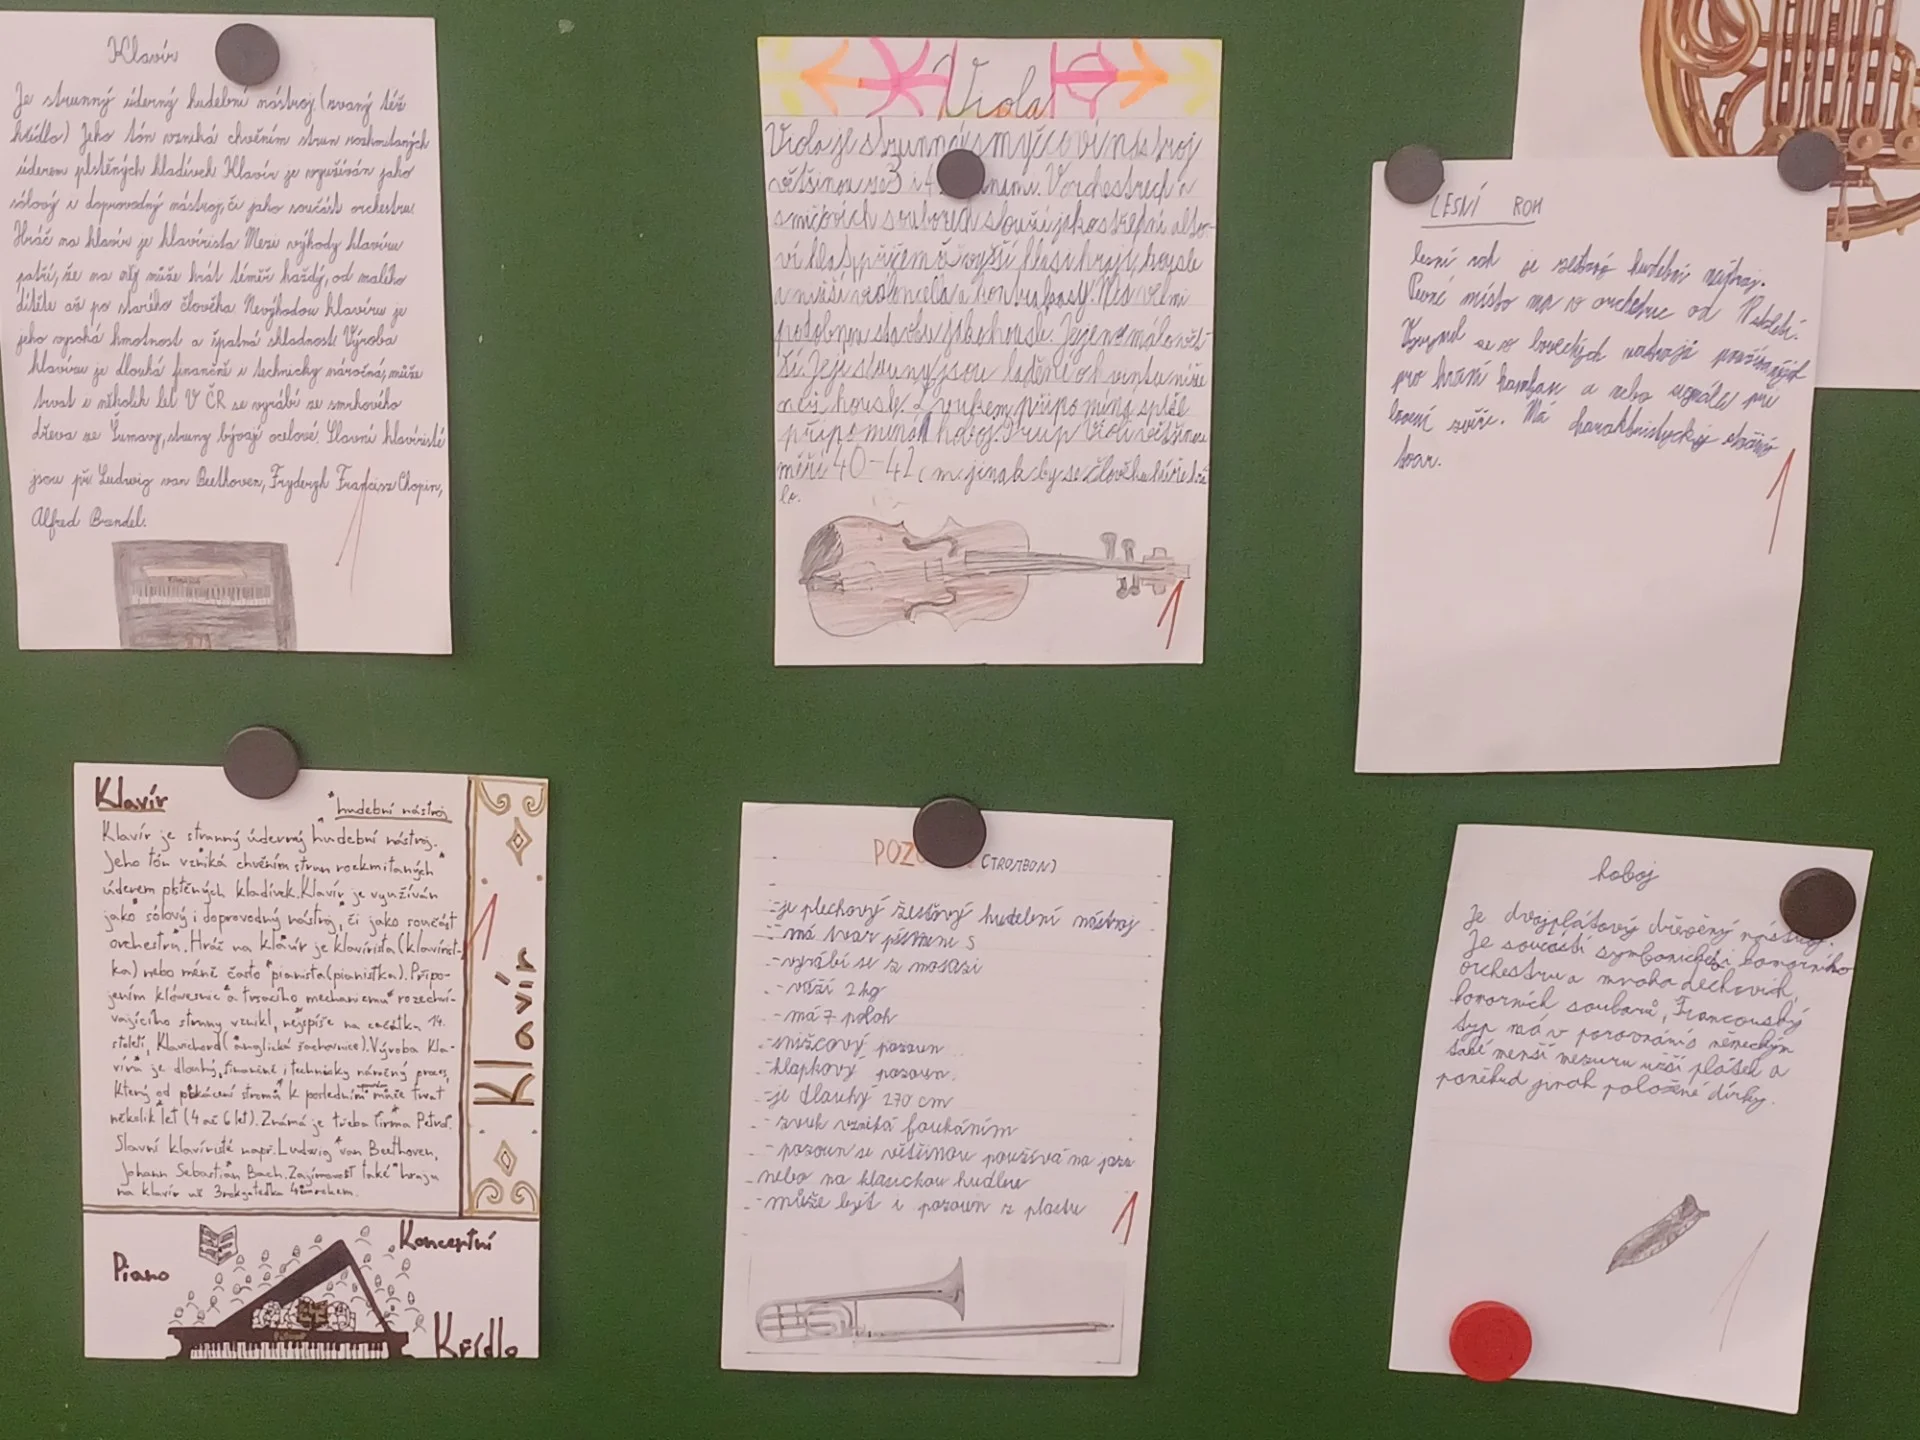 Klavír
Je strunný úderný hudební nástroj (zvaný též
křídlo) Jeho tón vzniká chvěním strun rozkmitaných
úderem plstěných kladívek Klavír je využíván jako
sólový i doprovodný nástroj, či jako součást orchestru.
Hráč na klavír je klavírista Mezi výhody klavíru
patří, že na něj může hrát téměř každý, od malého
dítěte až po starého člověka Nevýhodou klavíru je
jeho vysoká hmotnost a špatná skladnost Výroba
klavíru je dlouhá finančně i technicky náročná, může
trvat i několik let V ČR se vyrábí ze smrkového
dřeva ze Šumavy, struny bývají ocelové. Slavní klavíristé
jsou př. Ludwig van Beethoven, Fryderyk Chopin,
Alfred Brendel.
1
Viola
Viola je strunný smyčcoví nástroj
většinou se 3 i 4 V orchestrech a
smičcových souborech slouží jako střední alto-
ví hlas, přičemž vyšší hlasi hrají housle
a nižší violoncela a kontrabasy. Má velmi
podobnou stavbu jako housle. Je jen o málo vět-
ší. Její struny jsou laděné o kvintu níže
než housle. Zvukem připomíná spíše
připomíná hoboj. Trup violi většinou
měří 40-42 cm jinak by se člověku těžce drže-
lo.
1
LESNÍ ROH
lesní roh je žesťový hudební nástroj.
Pevné místo má v orchestru od
Vyvynul se z loveckých nástrojů používaných
pro hraní fanfár a nebo signálů při
lovení zvěře. Má charakteristický stočený
tvar.
1
Klavír
*hudební nástroj
Klavír je strunný úderný hudební nástroj.
Jeho tón vzniká chvěním strun rozkmitaných
úderem plstěných kladívek. Klavír je využíván
jako sólový i doprovodný nástroj, či jako součást
orchestru. Hráč na klavír je klavírista (klavírist-
ka) nebo méně často pianista (pianistka). Připo-
jením klávesnic a trsacího mechanismu rozechví-
vajícího struny vznikl, nejspíše na začátku 14.
století, Klavichord (anglická šachovnice). Výroba kla-
víru je dlouhý, finančně i technicky náročný proces,
který od pokácení stromů k poslednímu může trvat
několik let (4 až 6 let). Známá je třeba firma Petrof.
Slavní klavíristé např. Ludwig van Beethoven,
Johann Sebastian Bach. Zajímavost také hraju
na klavír už 3 roky
Klavír
1
Piano
Koncertní
Křídlo
POZ (TROMBON)
- je plechový žesťový hudební nástroj
- má tvar písmene S
- vyrábí se z mosazi
- váží 2 kg
- má 7 poloh
- snižcový pozoun
- klapkový pozoun.
- je dlouhý 270 cm
- zvuk vzniká foukáním
- pozoun se většinou používá na jazz
nebo na klasickou hudbu
- může být i pozoun z plastu
1
hoboj
Je dvojplátkový dřevěný nástroj.
Je součástí symfonického i komorního
orchestru a mnoha dechových
komorních souborů, Francouzský
typ má v porovnání s německým
také menší menzuru užší plátek a
poněkud jinak položené dírky.
1